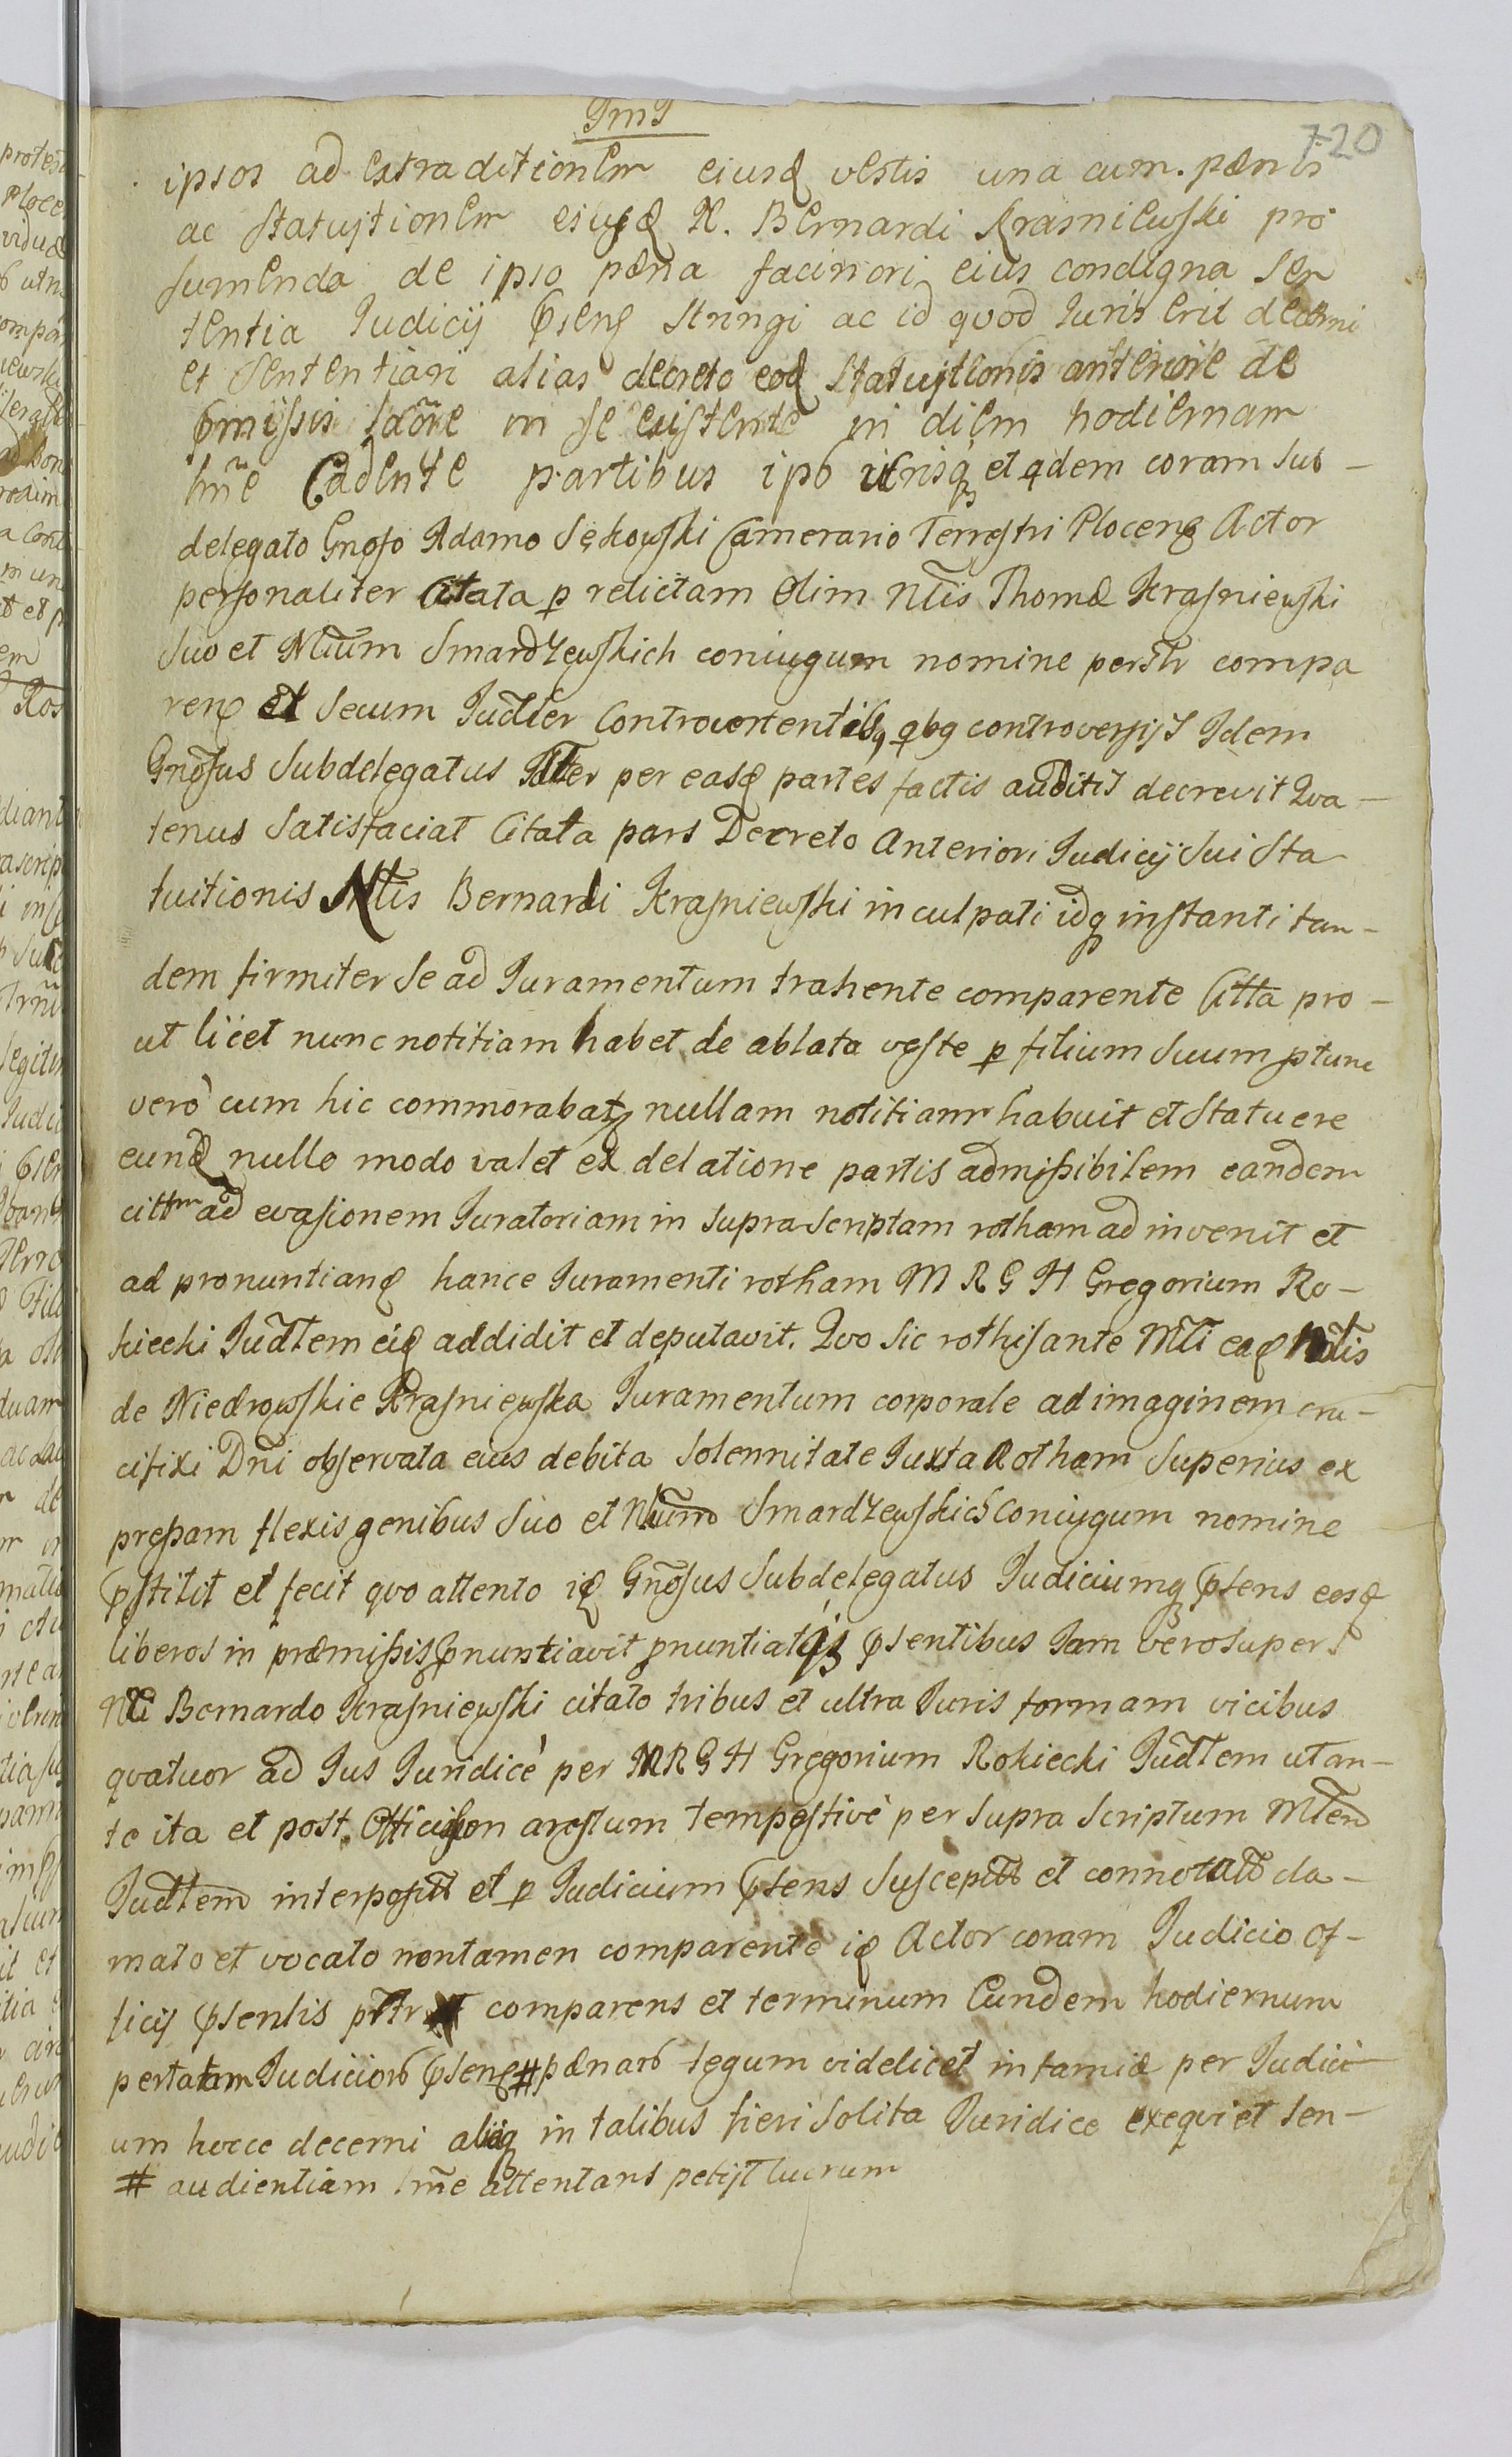 720
ipsos ad extraditionem eiusd vestis una cum pænis
ac statuitionem eiusd N. Bernardi Krasniewski pro
sumenda de ipso pæna facinori eius condigna sen
tentia Judicij pseng stringi ac id quod Juris erit decerni
et sententiari alias decreto eod statuitionis anteriore de
pmissis in se existente in diem hodiernam
lmẽ Cadente partibus ipõ utrisq et qdem coram sub –
delegato Gnoso Adamo Sękowski Camerario Terrestri Ploceng Actor
personaliter Citata p relictam olim Nlis Thomæ Krasniewski
suo et Nlium Smardzewskich coniugum nomine perslr compa
reng et secum Judler Controvertentibq qbg controversijs Idem
Gnõsus Subdelegatus per easd partes factis auditis decrevit Qva –
tenus satisfaciat Citata pars Decreto Anteriori Judicij sui sta
tuitionis Nlis Bernardi Krasniewski inculpati idq instanti tan –
dem firmiter se ad Juramentum trahente comparente Citta pro –
ut licet nunc notitiam habet de ablata veste p filium suum ptunc
verò cum hic commorabatz nullam notitiam habuit et statuere
eund nullo modo valet ex delatione partis admissibilem eandem
cittm ad evasionem Juratoriam in suprascriptam rotham adinvenit et
ad pronuntiand hance Juramenti rotham M R G H Gregorium Ro –
kiecki Judtem eid addidit et deputavit. Qvo sic rothisante Mlti ead Nlis
de Niedrowskie Krasniewska Juramentum corporale ad imaginem cru –
cifixi Dnĩ observata eius debita solennitate Juxta Rotham superius ex
pressam flexis genibus suo et Nlium Smardzewskich Coniugum nomine
pstitit et fecit qvo attento id Gnõsus Subdelegatus Judiciumq psens eosd
liberos in præmissis pnuntiavit pnuntiatqz psentibus Jam vero super
Nli Bernardo Krasniewski citato tribus et ultra Juris formam vicibus
qvatuor ad Jus Juridicè per M R G H Gregorium Rokiecki Judtem ut an –
te ita et post arestum tempestivè per supra scriptum Mltem
Judtem interposit et p Judicium psens susceptũ et connotatũ cla –
mato et vocato nontamen comparente id Actor coram Judicio of –
ficij psentis comparens et terminum Eundem hodiernum
Judicior pseng # pænarũ legum videlicet infamiæ per Judici
um hocce decerni aliaq in talibus fieri solita Juridice exeqvi et sen –
# audientiam lmẽ attentans petijt lucrum